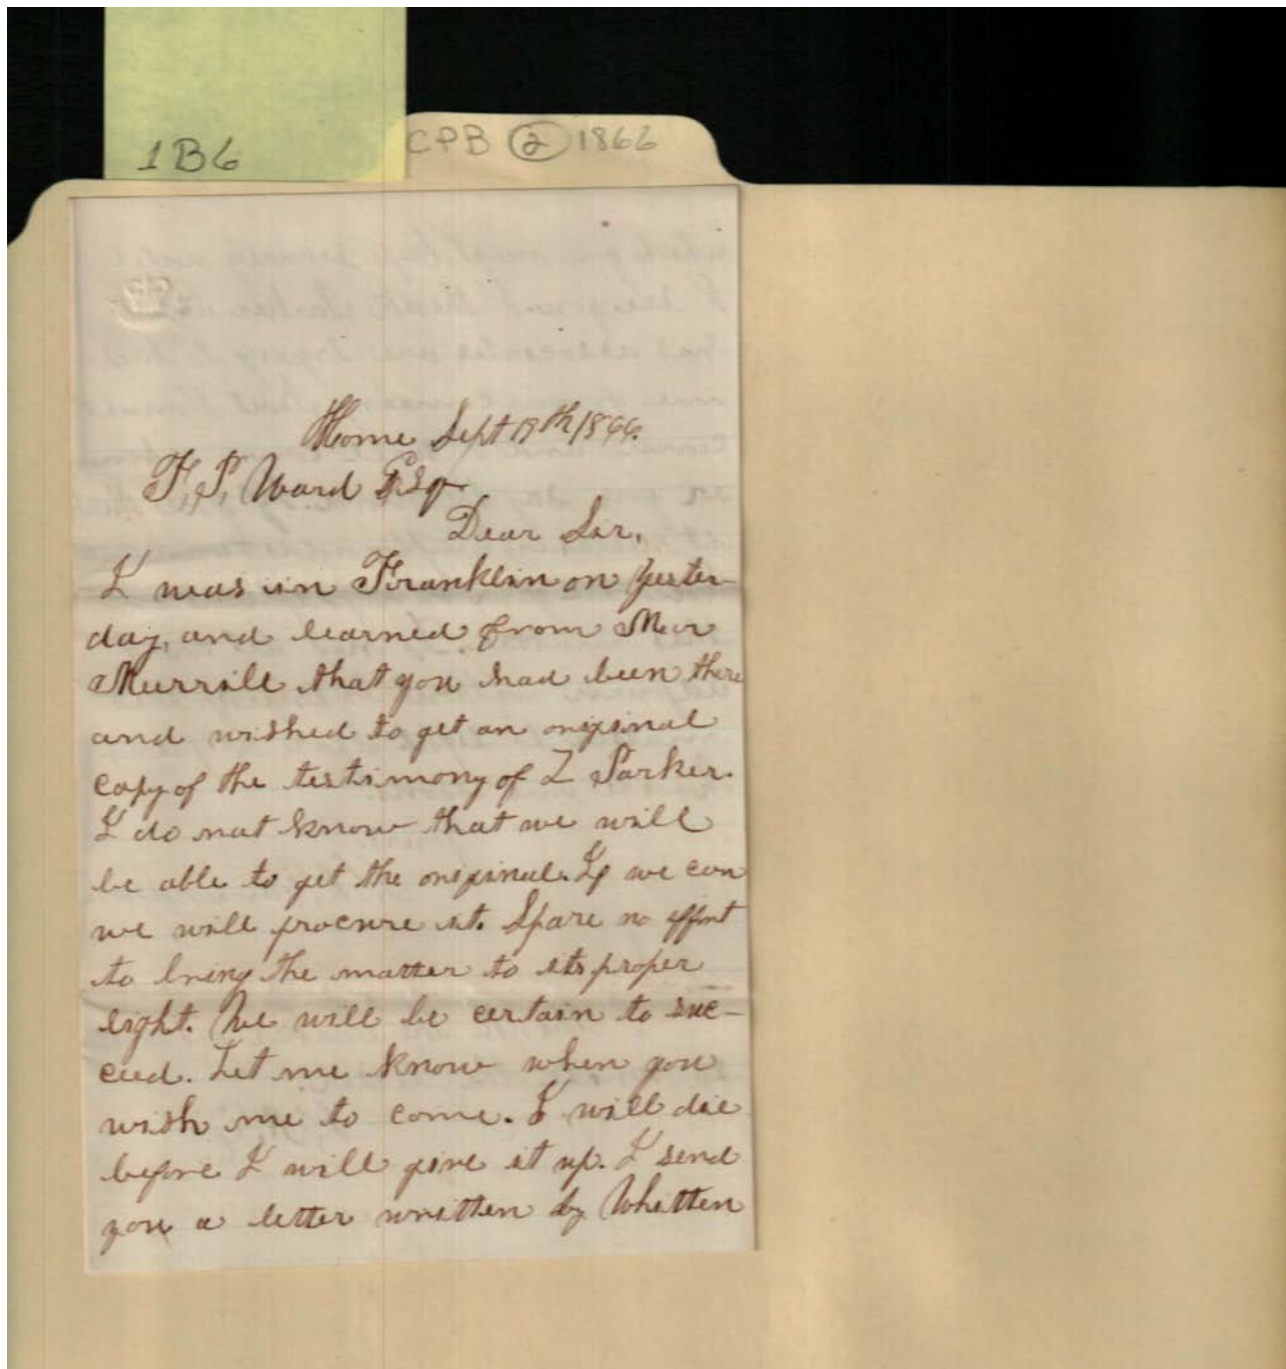 1B6
CPB 2 1866
Home Sept 19th 1866.
F. P. Ward Esq
Dear Sir,
I was in Franklin on yester-
day, and learned from
Murrill that you had been there
and wished to get an original
copy of the testimony of Z Parker.
I do not know that we will
be able to get the original. If we can
we will procure it. Spare no effort
to bring the matter to its proper
light. We will be certain to suc-
ceed. Let me know when you
wish me to come. I will die
before I will give it up. I send
you a letter written by Whitten